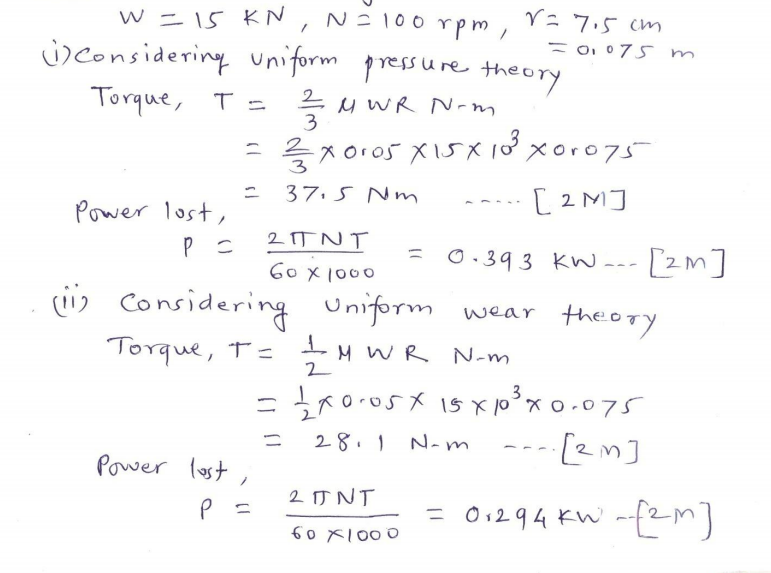 W = 15 KN, N = 100 rpm, r = 7.5 cm
= 0.075 m
(i) Considering uniform pressure theory
Torque, T = 2/3 μ WR N-m
= 2/3 × 0.05 × 15 × 10³ × 0.075
= 37.5 Nm ----- [2M]
Power lost,
P = 2πNT / 60 × 1000 = 0.393 KW --- [2M]
(ii) Considering Uniform wear theory
Torque, T = 1/2 μ WR N-m
= 1/2 × 0.05 × 15 × 10³ × 0.075
= 28.1 N-m ---- [2M]
Power lost,
P = 2πNT / 60 × 1000 = 0.294 KW -- [2M]